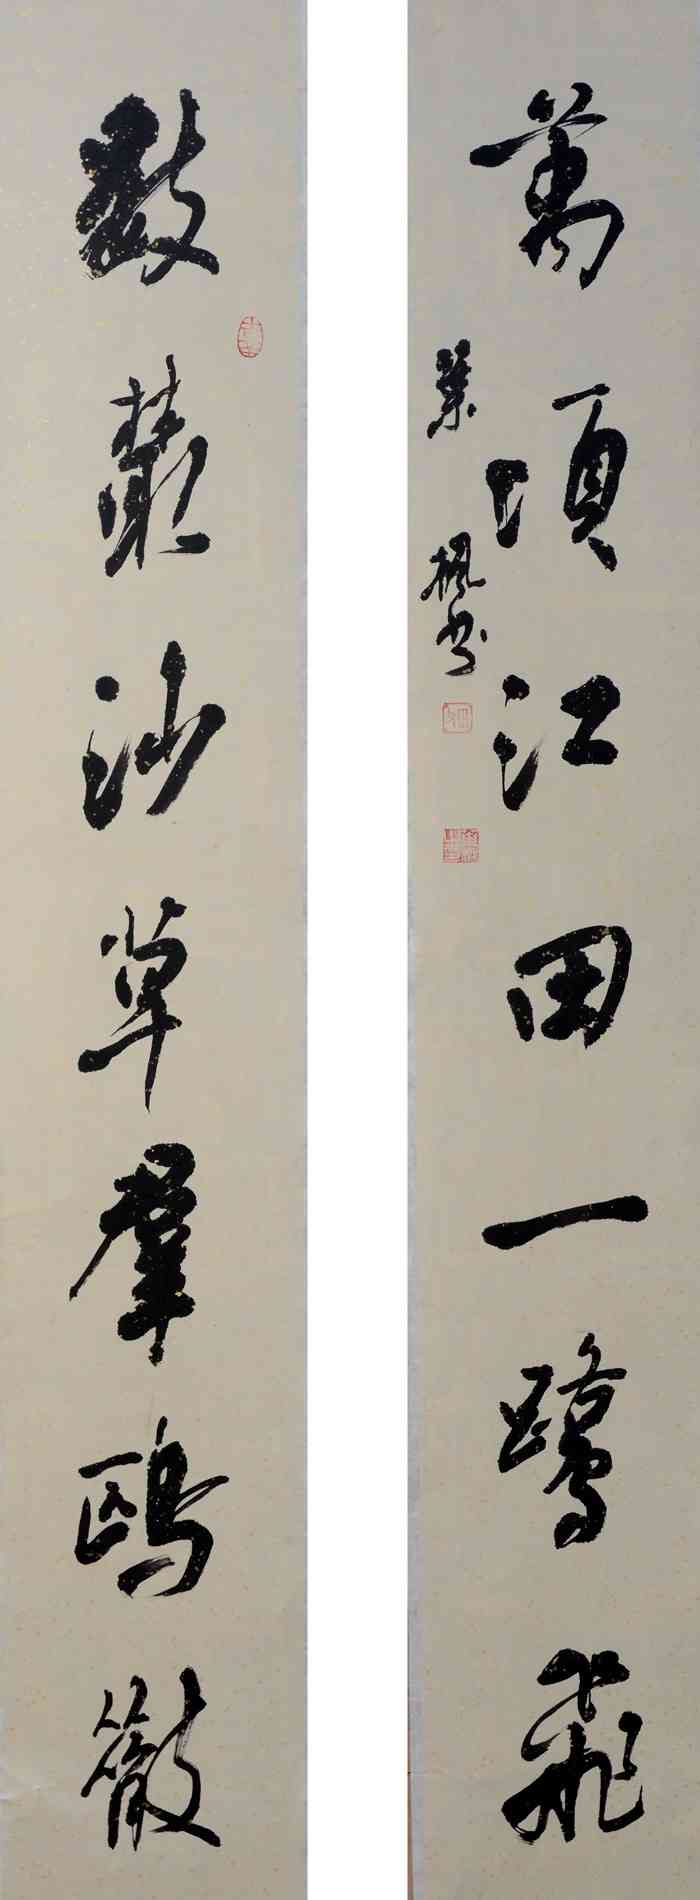 數叢沙草羣鷗散
萬頃江田一鷺飛
葉楓書